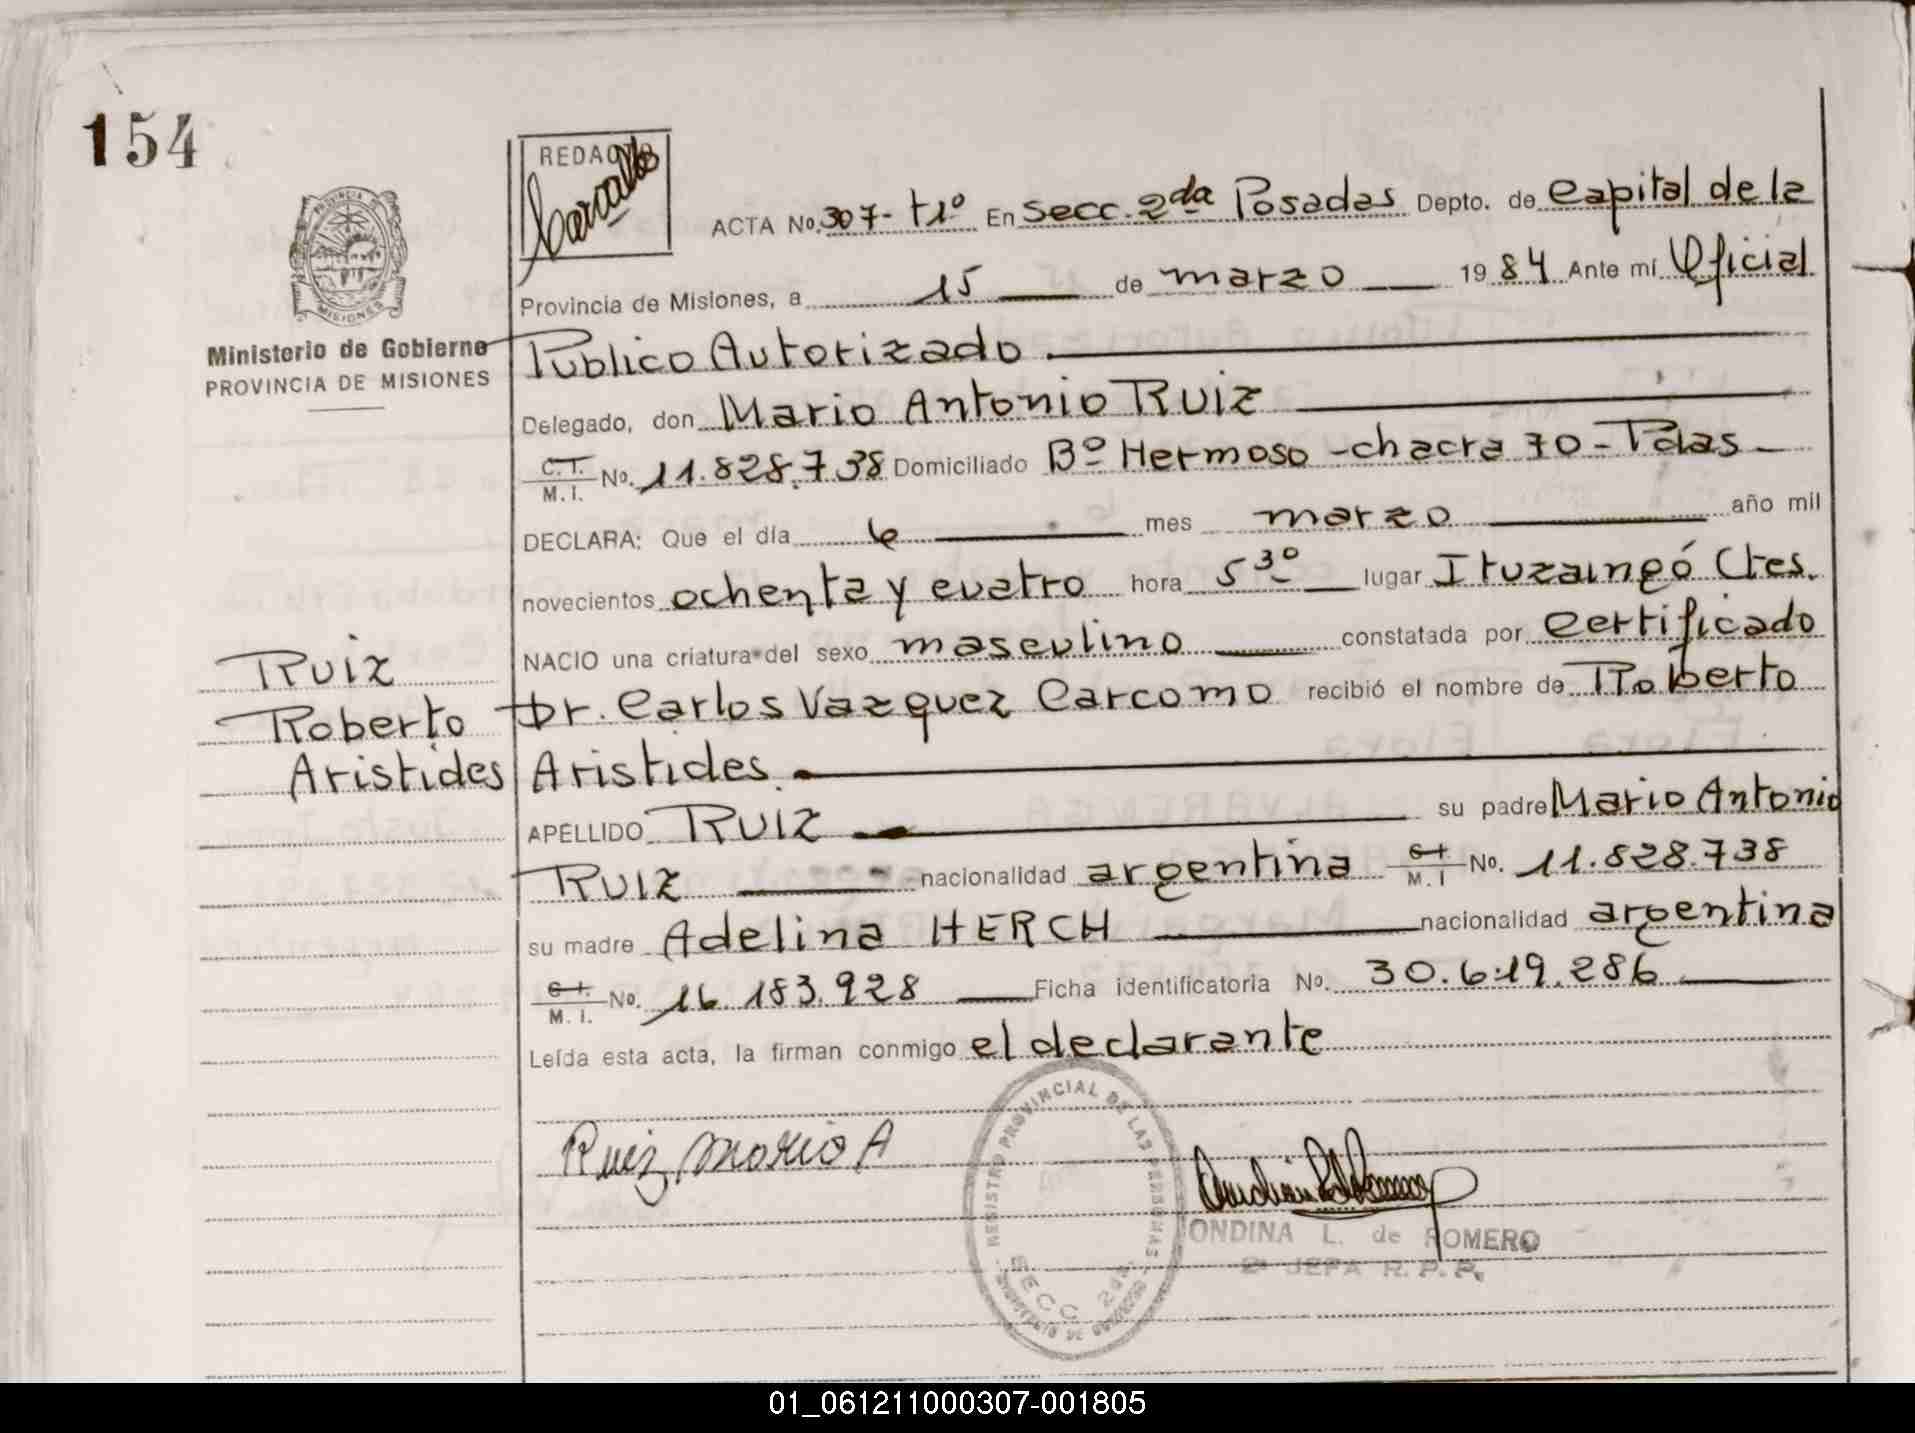 154
PROVINCIA DE
MISIONES
Ministerio de Gobierno
PROVINCIA DE MISIONES
REDACTO
ACTA No. 307- t1º En Secc. 2da Posadas Depto. de Capital de la
Provincia de Misiones, a 15 de marzo 1984 Ante mí Oficial
Público Autorizado
Delegado, don Mario Antonio Ruiz
C.I. M.I. No. 11.828.738 Domiciliado Bº Hermoso - chacra 70 - Pdas
DECLARA: Que el día 6 mes marzo año mil
novecientos ochenta y cuatro hora 5 30 lugar Ituzaingó Ctes.
NACIO una criatura del sexo masculino constatada por certificado
Dr. Carlos Vazquez Carcomo recibió el nombre de Roberto
Aristides
Ruiz
Roberto
Aristides
APELLIDO Ruiz su padre Mario Antonio
Ruiz nacionalidad argentina C.I. M.I No. 11.828.738
su madre Adelina HERCH nacionalidad argentina
C.I. M.I. No. 16.183.928 Ficha identificatoria No. 30.619.286
Leída esta acta, la firman conmigo el declarante
Ruiz Mario A
REGISTRO PROVINCIAL DE LAS PERSONAS
SECC. 2da.
MINISTERIO DE GOBIERNO
ONDINA L. de ROMERO
2ª JEFA R. P. P.
01_061211000307-001805